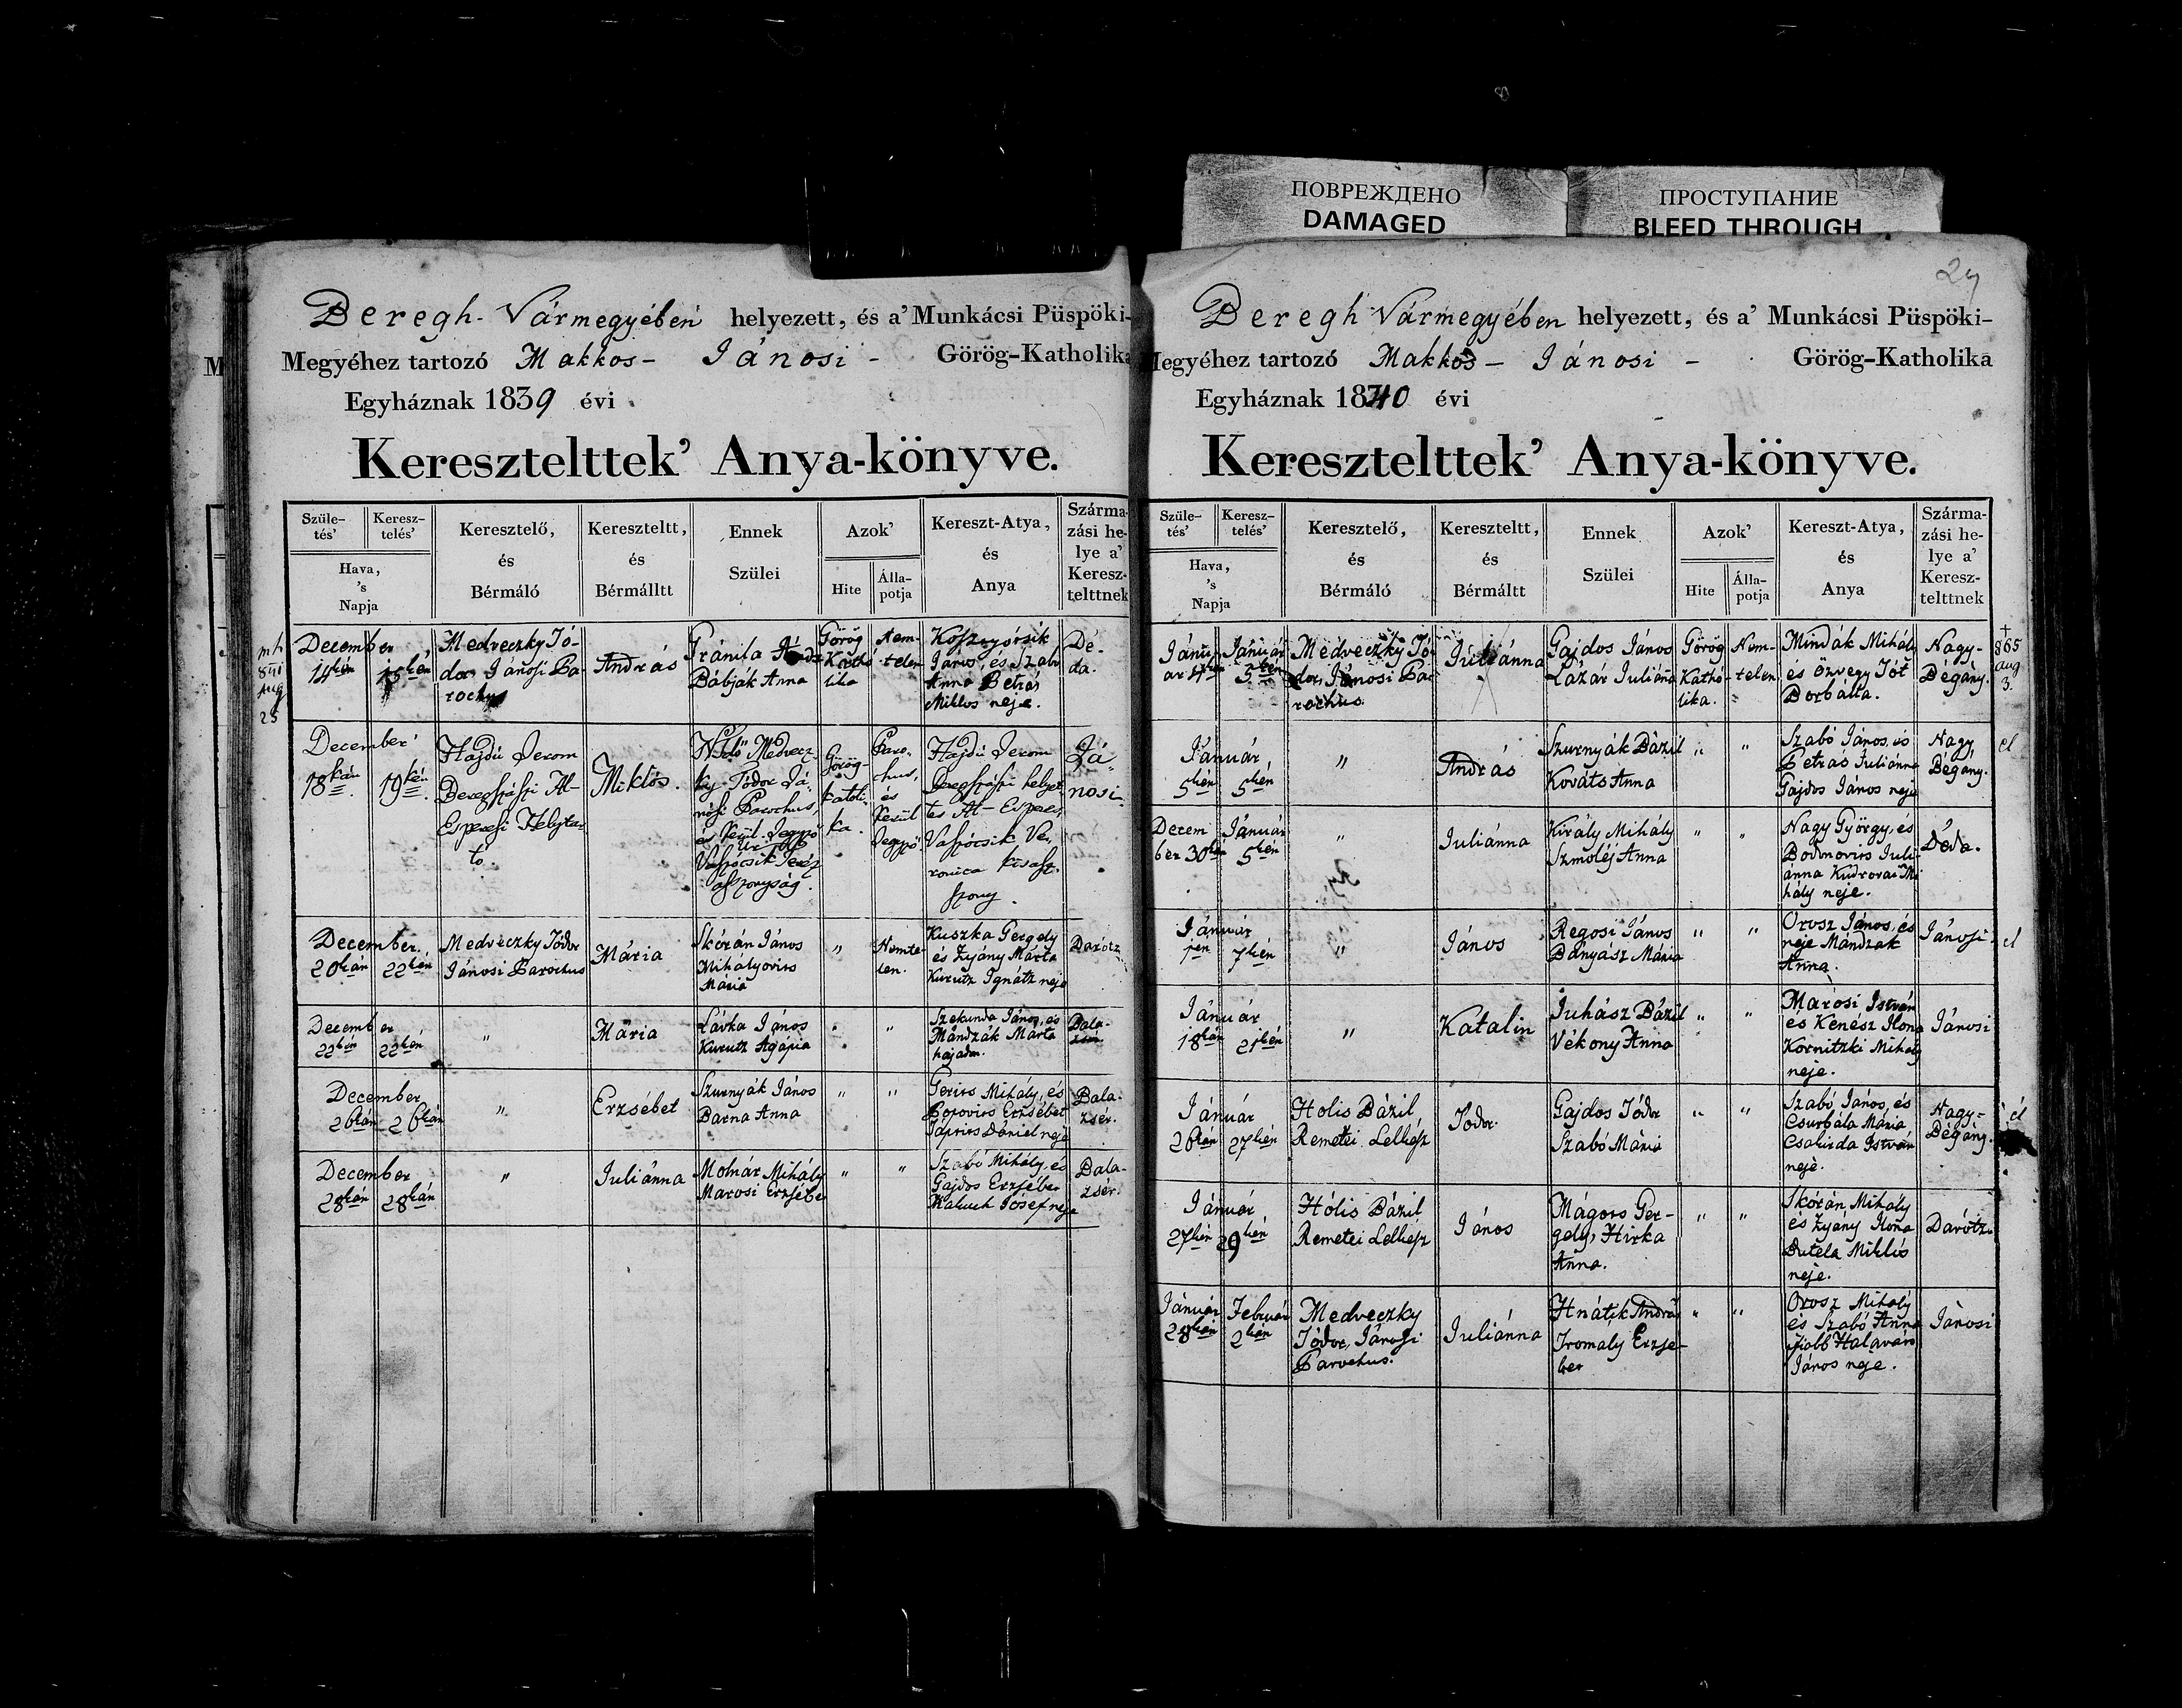 ПОВРЕЖДЕНО
DAMAGED
ПРОСТУПАНИЕ
BLEED THROUGH
M
Beregh-Vármegyében helyezett, és a' Munkácsi Püspöki-
Megyéhez tartozó Makkos- Jánosi - Görög-Katholika
Egyháznak 1839 évi
Keresztelttek' Anya-könyve.
Szüle-
tés'
Keresz-
telés'
Hava,
's
Napja
Keresztelő,
és
Bérmáló
Kereszteltt,
és
Bérmálltt
Ennek
Szülei
Azok'
Hite
Álla-
potja
Kereszt-Atya,
és
Anya
Szárma-
zási he-
lye a'
Keresz-
telttnek
December
14kén 15kén
Medveczky Tó-
dor, Jánosi Pa-
rochus
András
Bábják Anna
Görög
Katho
lika
Nem-
telen
János, és Szabó
Anna Petrás
Miklos neje.
Dé-
da.
December
18kán 19kén
Hajdú Jerom
Miklós.
Görög-
katoli-
ka.
Paro-
chus,
és
Hajdú Jerom
Já-
nosi.
December.
20kán 22kén
Medveczky Tódor
Jánosi Parochus
Mária
Skórán János
Mihályovics
Mária
"
Nemte-
len.
Kuszka Gergely
és Zyány Márta
Kurutz Ignátz neje
Darótz
December
22kén 22kén
"
Mária
Lávka János
Kurutz Agápia
"
"
Szekunda János, és
Mándzák Márta
hajadon.
December
26kán 26kán
"
Erzsébet
Szurnyák János
Barna Anna
"
"
Popovics Erzsébet
Dániel neje
Bala-
zsér.
December
28kán 28kán
"
Juliánna
Molnár Mihály
Marosi Erzsébet
"
"
Szabó Mihály, és
Gajdos Erzsébet
Jósef neje
Bala-
zsér.
29
Beregh Vármegyében helyezett, és a' Munkácsi Püspöki-
Megyéhez tartozó Makkos- Jánosi - Görög-Katholika
Egyháznak 1840 évi
Keresztelttek' Anya-könyve.
Szüle-
tés'
Keresz-
telés'
Hava,
's
Napja
Keresztelő,
és
Bérmáló
Kereszteltt,
és
Bérmáltt
Ennek
Szülei
Azok'
Hite
Álla-
potja
Kereszt-Atya,
és
Anya
Szárma-
zási he-
lye a'
Keresz-
telttnek
Janu-
ar 4kén
Január
5kén
Medveczky Tó-
dor, Jánosi Pa-
rochus.
Juliánna
Gajdos János
Lázár Juliána
Görög
Kathó-
lika.
Nem-
telen
Mindák Mihály
és özvegy Tót
Borbálla.
Nagy-
Bégány.
865
aug
3.
Január
5kén 5kén
"
András
Szurnyák Bázil
Kováts Anna
"
"
Szabó János, és
Petrás Juliánna
Gajdos János neje
Nagy
Bégány.
él
Decem
ber 30kán
Január
5kén
"
Juliánna
Király Mihály
Szmoléj Anna
"
"
Nagy György, és
Juli-
ánna Mi-
hály neje.
Déda.
Január
1én 7kén
"
János
Regosi János
Bányász Mária
"
"
Orosz János, és
neje Mándzak
Anna.
Jánosi.
él
Január
18kán 21kén
"
Katalin
Juhász Bázil
Vékony Anna
"
"
Marosi István
és Kenész Ilona
Kornitzki Mihály
neje.
Jánosi
Január
26kán 27kén
Holis Bázil,
Remetei Lelkész
Tódor.
Gajdos Tódor
Szabó Mária
"
"
Szabó János, és
Csurbála Mária
István
neje.
Nagy-
Bégány.
él
Január
27kén 29kén
Hólis Bázil
Remetei Lelkész
János
Mágocs Ger-
gely, Hirka
Anna.
"
"
Skórán Mihály
és Zyány Ilona
Dutela Miklós
neje.
Darótz.
Január
28kán
Február
2kán
Medveczky
Tódor, Jánosi
Parochus.
Juliánna
Hnátik András
Tromaly Erzsé-
bet
"
"
Orosz Mihály
és Szabó Anna
János neje.
Jánosi